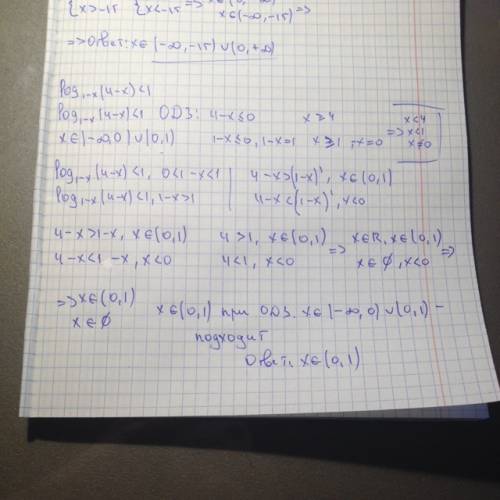 {x>-15 {x<-15 => x∈(-∞,-15) =>
=> Ответ: x∈(-∞,-15)∪(0,+∞)
log₁₋ₓ(4-x)<1
log₁₋ₓ(4-x)<1 ОДЗ: 4-x≤0 x≥4 x<4
x∈(-∞,0)∪(0,1) 1-x≤0, 1-x=1 x≥1, x=0 => x<1
x≠0
log₁₋ₓ(4-x)<1, 0<1-x<1 | 4-x>(1-x)¹, x∈(0,1)
log₁₋ₓ(4-x)<1, 1-x>1 | 4-x<(1-x)¹, x<0
4-x>1-x, x∈(0,1) 4>1, x∈(0,1) => x∈R, x∈(0,1) =>
4-x<1-x, x<0 4<1, x<0 x∈∅, x<0
=> x∈(0,1) x∈(0,1) при ОДЗ. x∈(-∞,0)∪(0,1) -
x∈∅ подходит
Ответ: x∈(0,1)